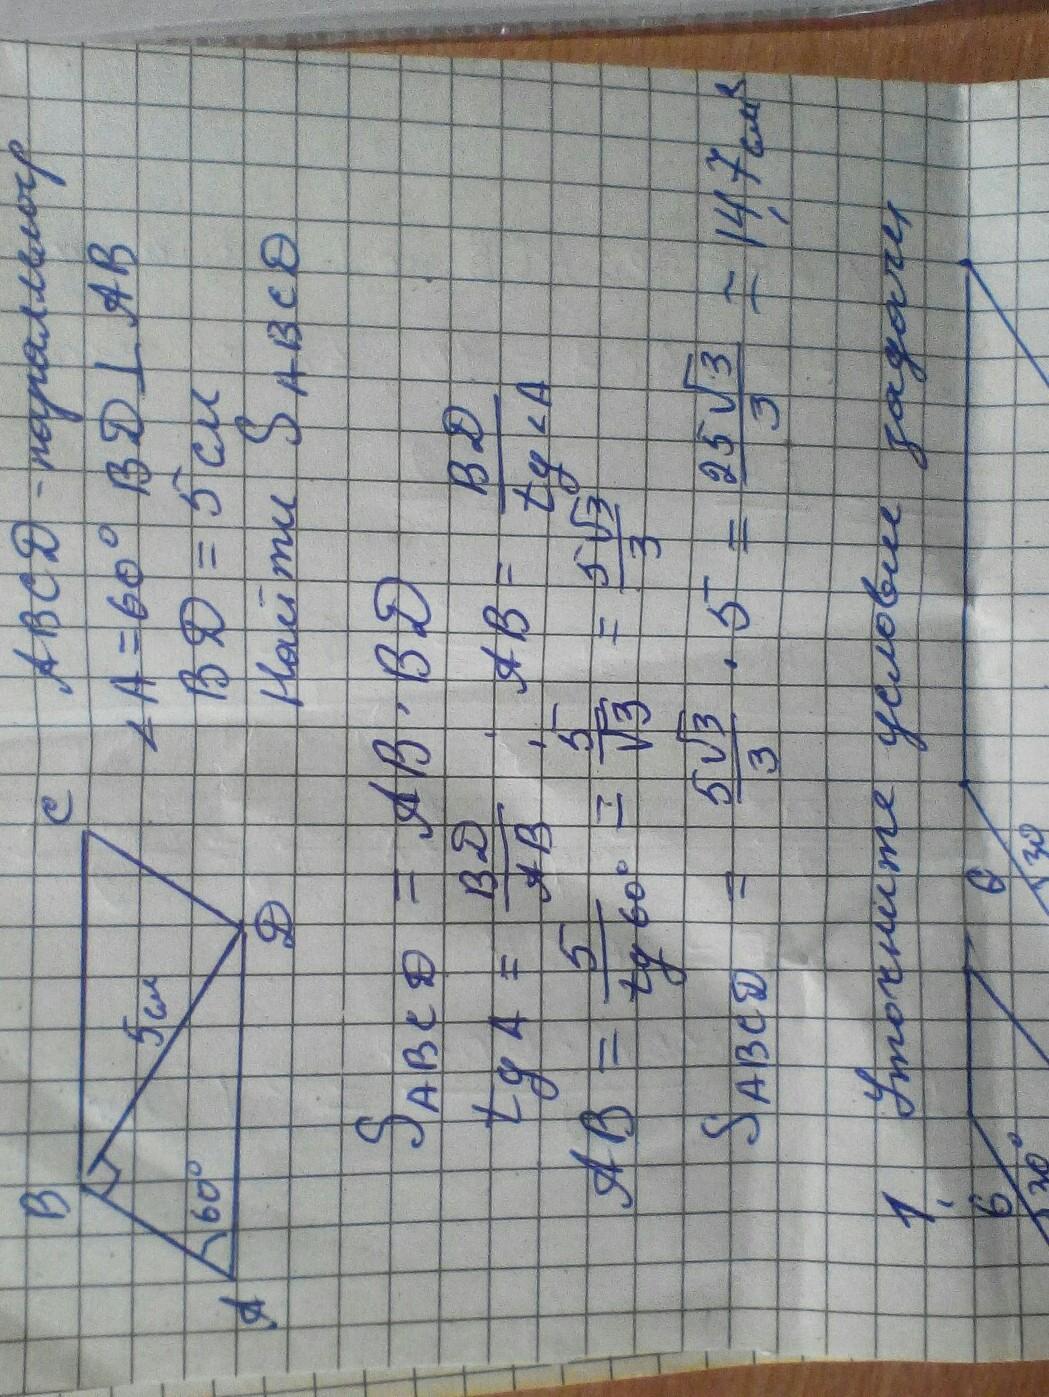 ABCD - параллелогр
∠A = 60° BD ⊥ AB
BD = 5 см
Найти S ABCD
B
C
5 см
60°
A
D
S ABCD = AB · BD
tg A = BD/AB ; AB = BD/tg∠A
AB = 5/tg 60° = 5/√3 = 5√3/3
S ABCD = 5√3/3 · 5 = 25√3/3 ≈ 14,7 см²
1, Уточните условие задачи
6
30°
6
30